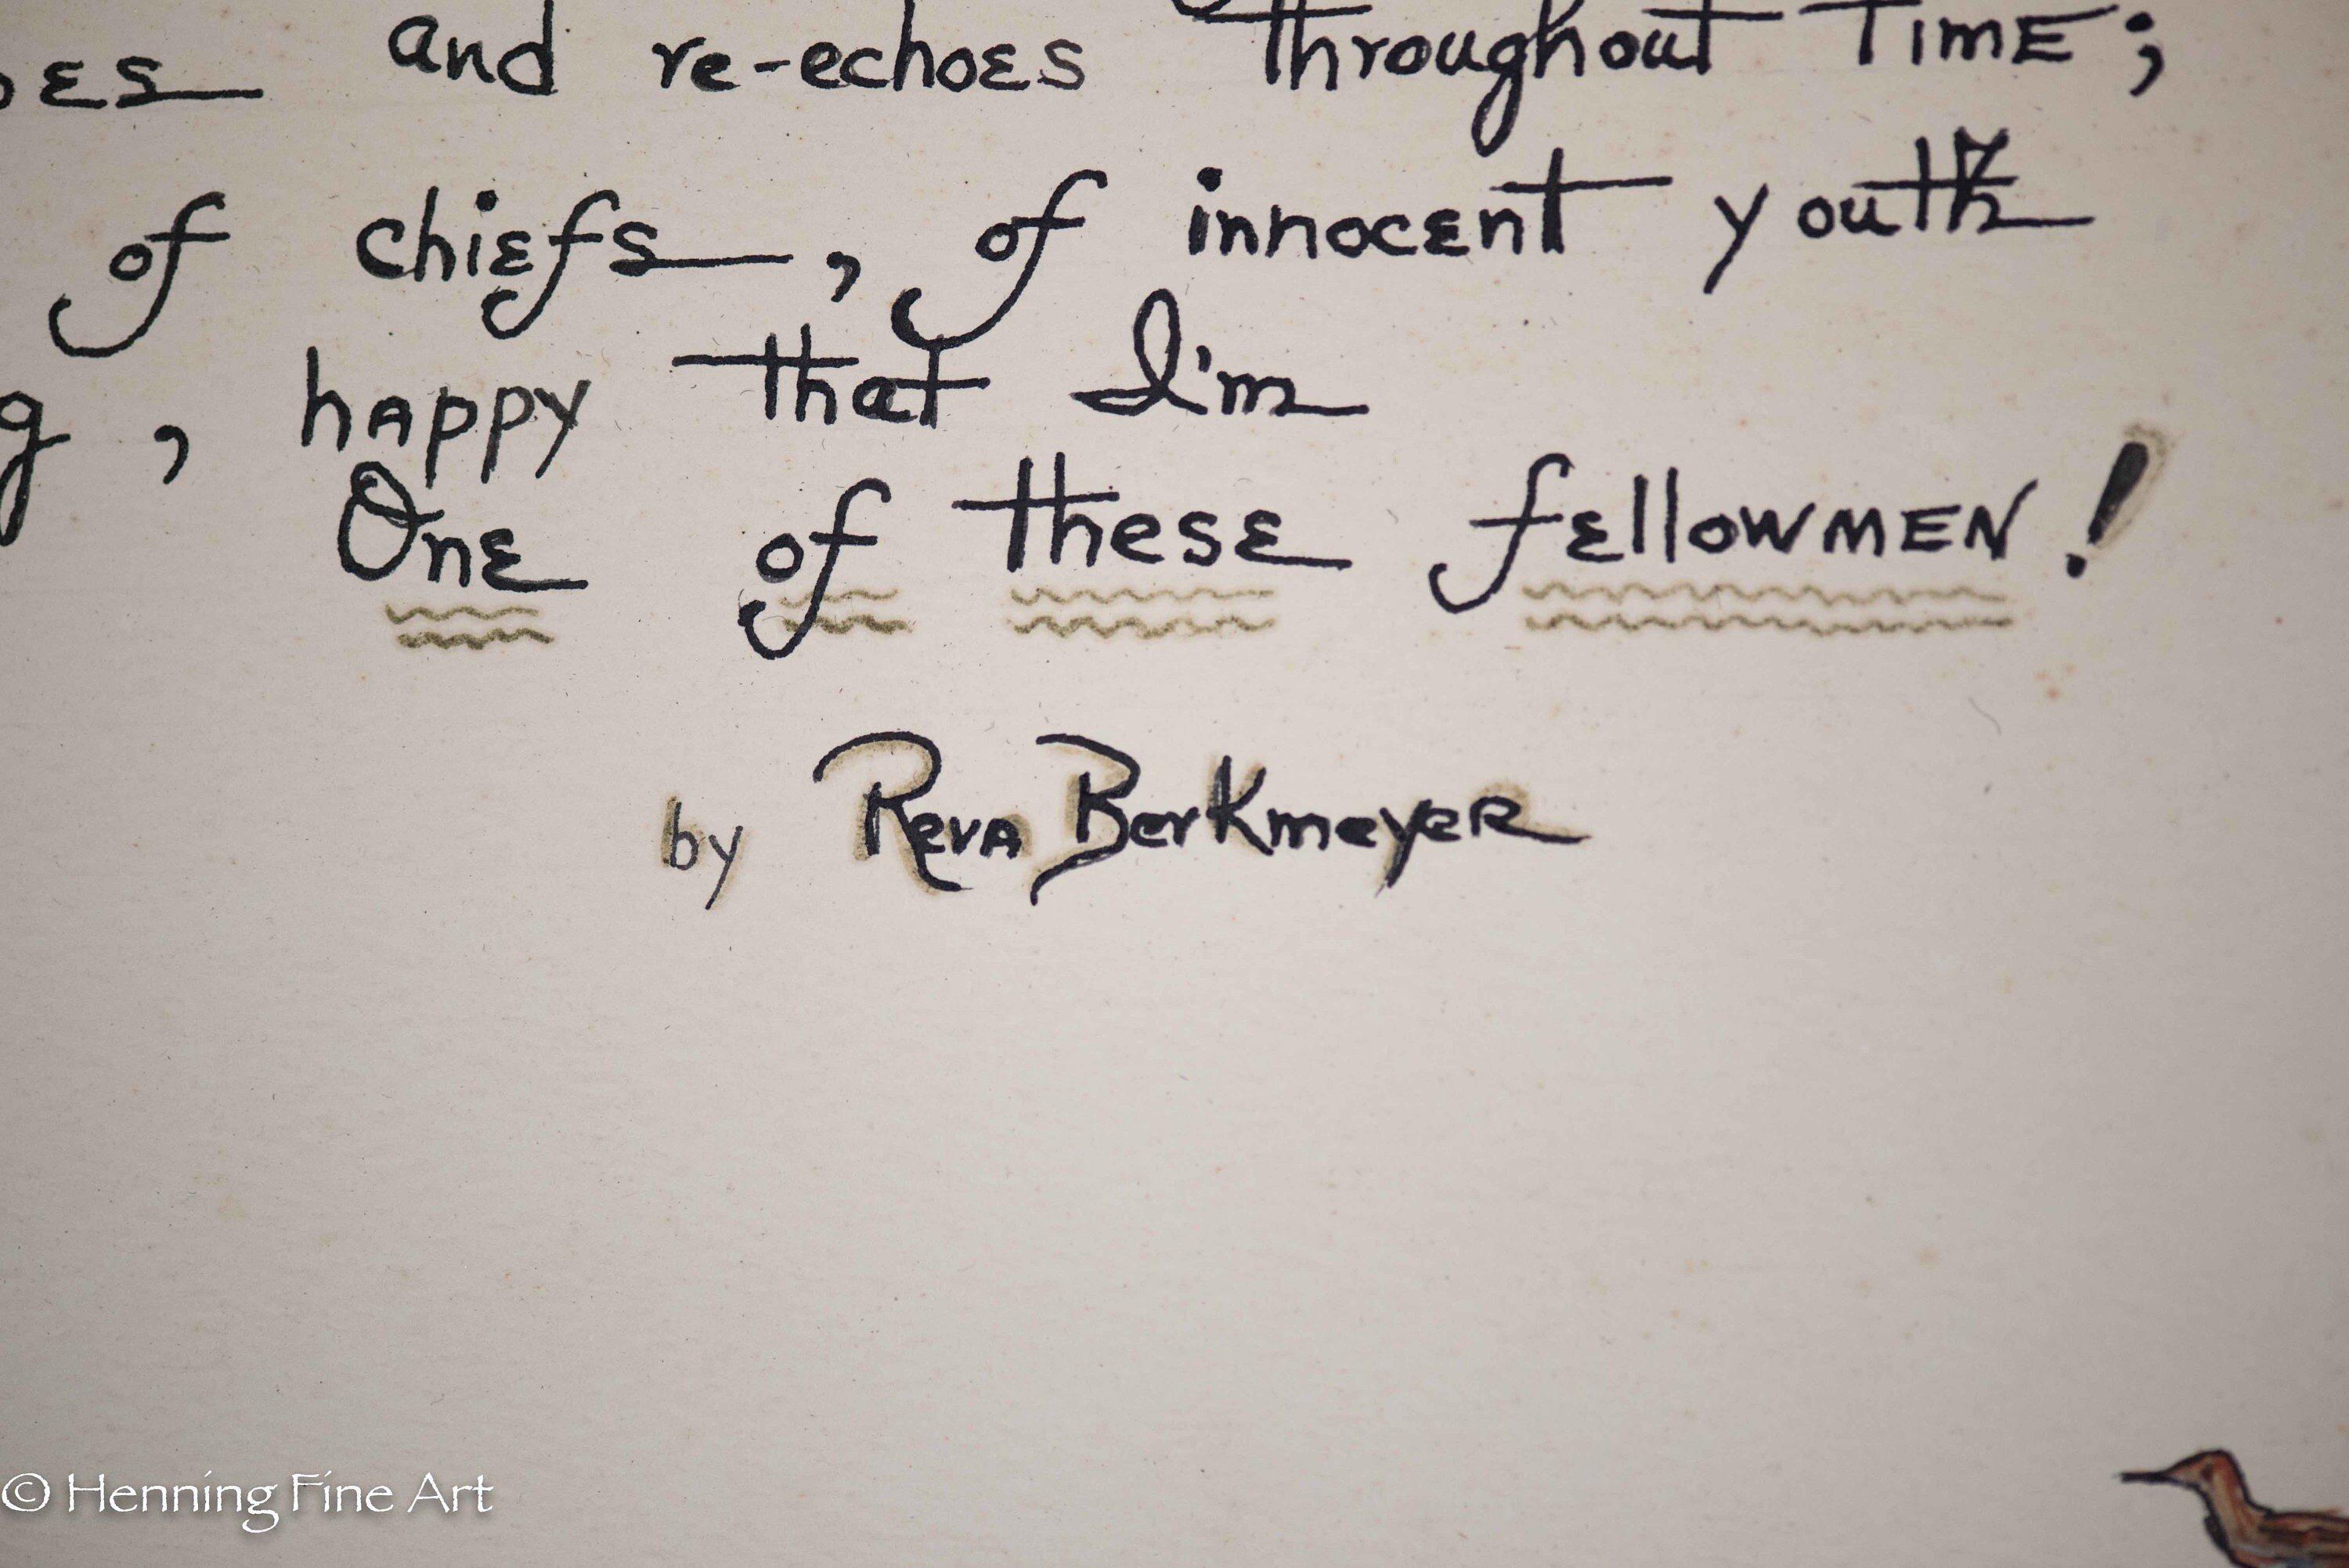 and re-echoes throughout TIME;
of chiefs, of innocent youth
, happy that I'm
One of these fellowMEN!
by Reva Berkmeyer
© Henning Fine Art